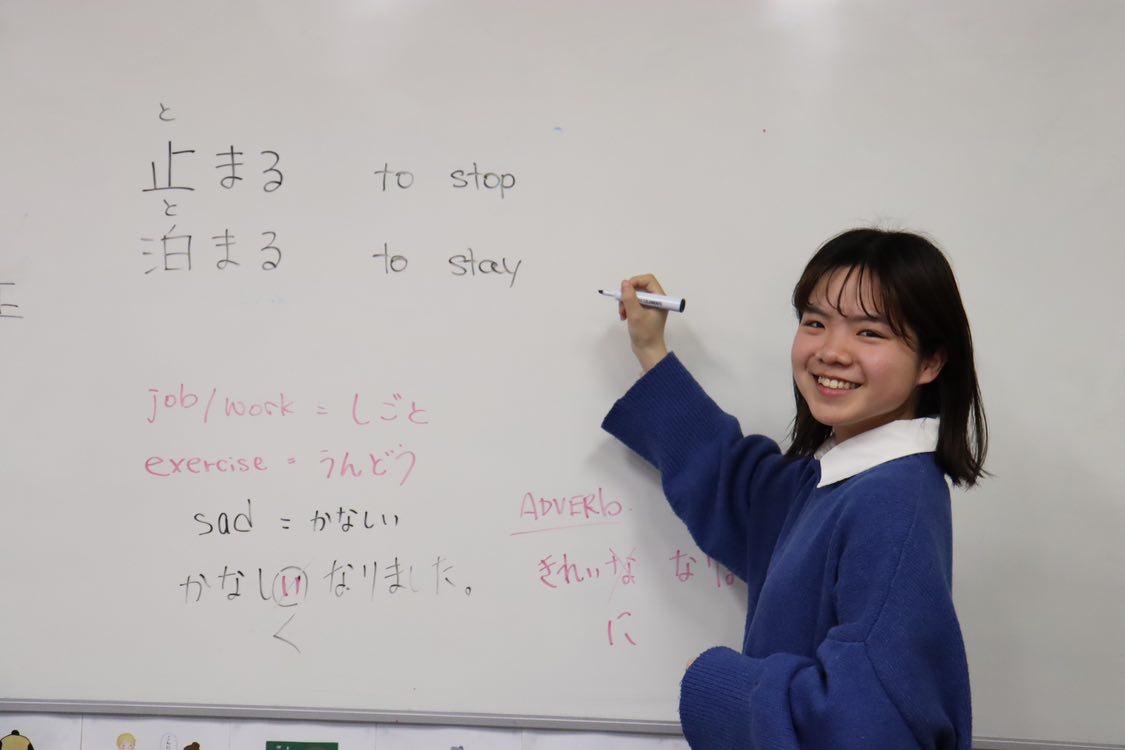 と
止まる to stop
と
泊まる to stay
job/work = しごと
exercise = うんどう
sad = かなしい
かなしいなりました。
く
ADVERb.
きれいな なり
に